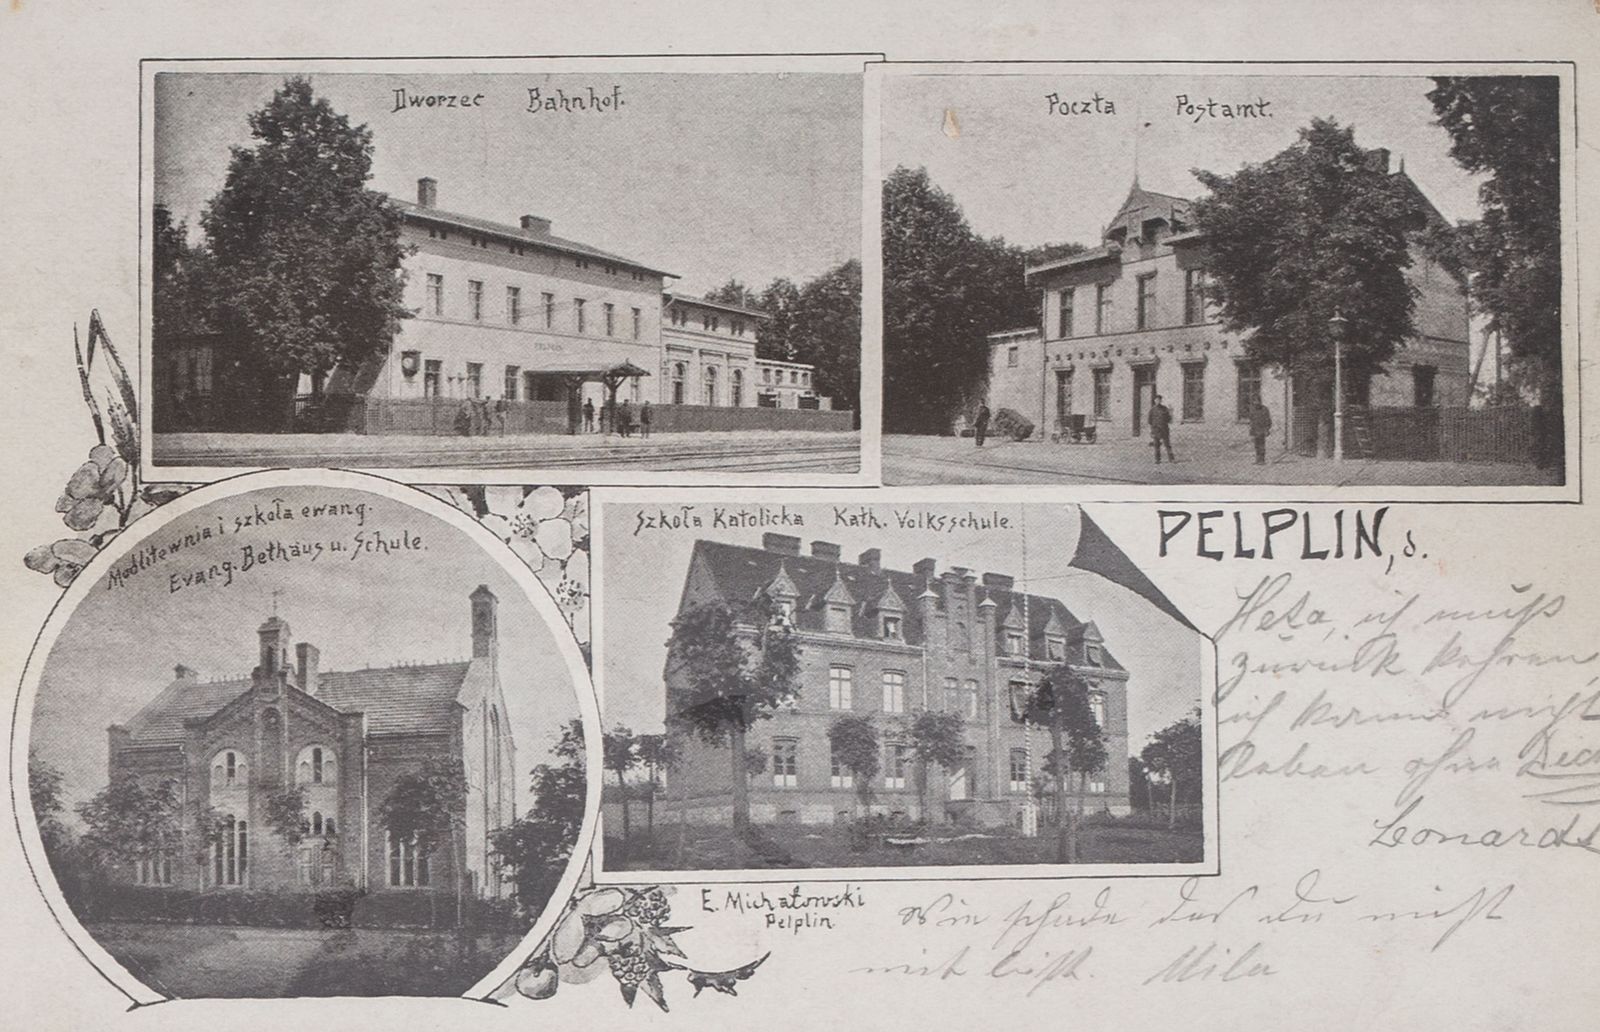 Dworzec Bahnhof.
PELPLIN
Poczta Postamt.
Modlitewnia i szkoła ewang.
Evang. Bethaus u. Schule.
Szkoła Katolicka Kath. Volksschule.
PELPLIN, d.
ich muß
zurück kehren,
ich kann nicht
leben ohne Dich
Leonard
E. Michałowski
Pelplin.
Wie schade das du nicht
mit bist.